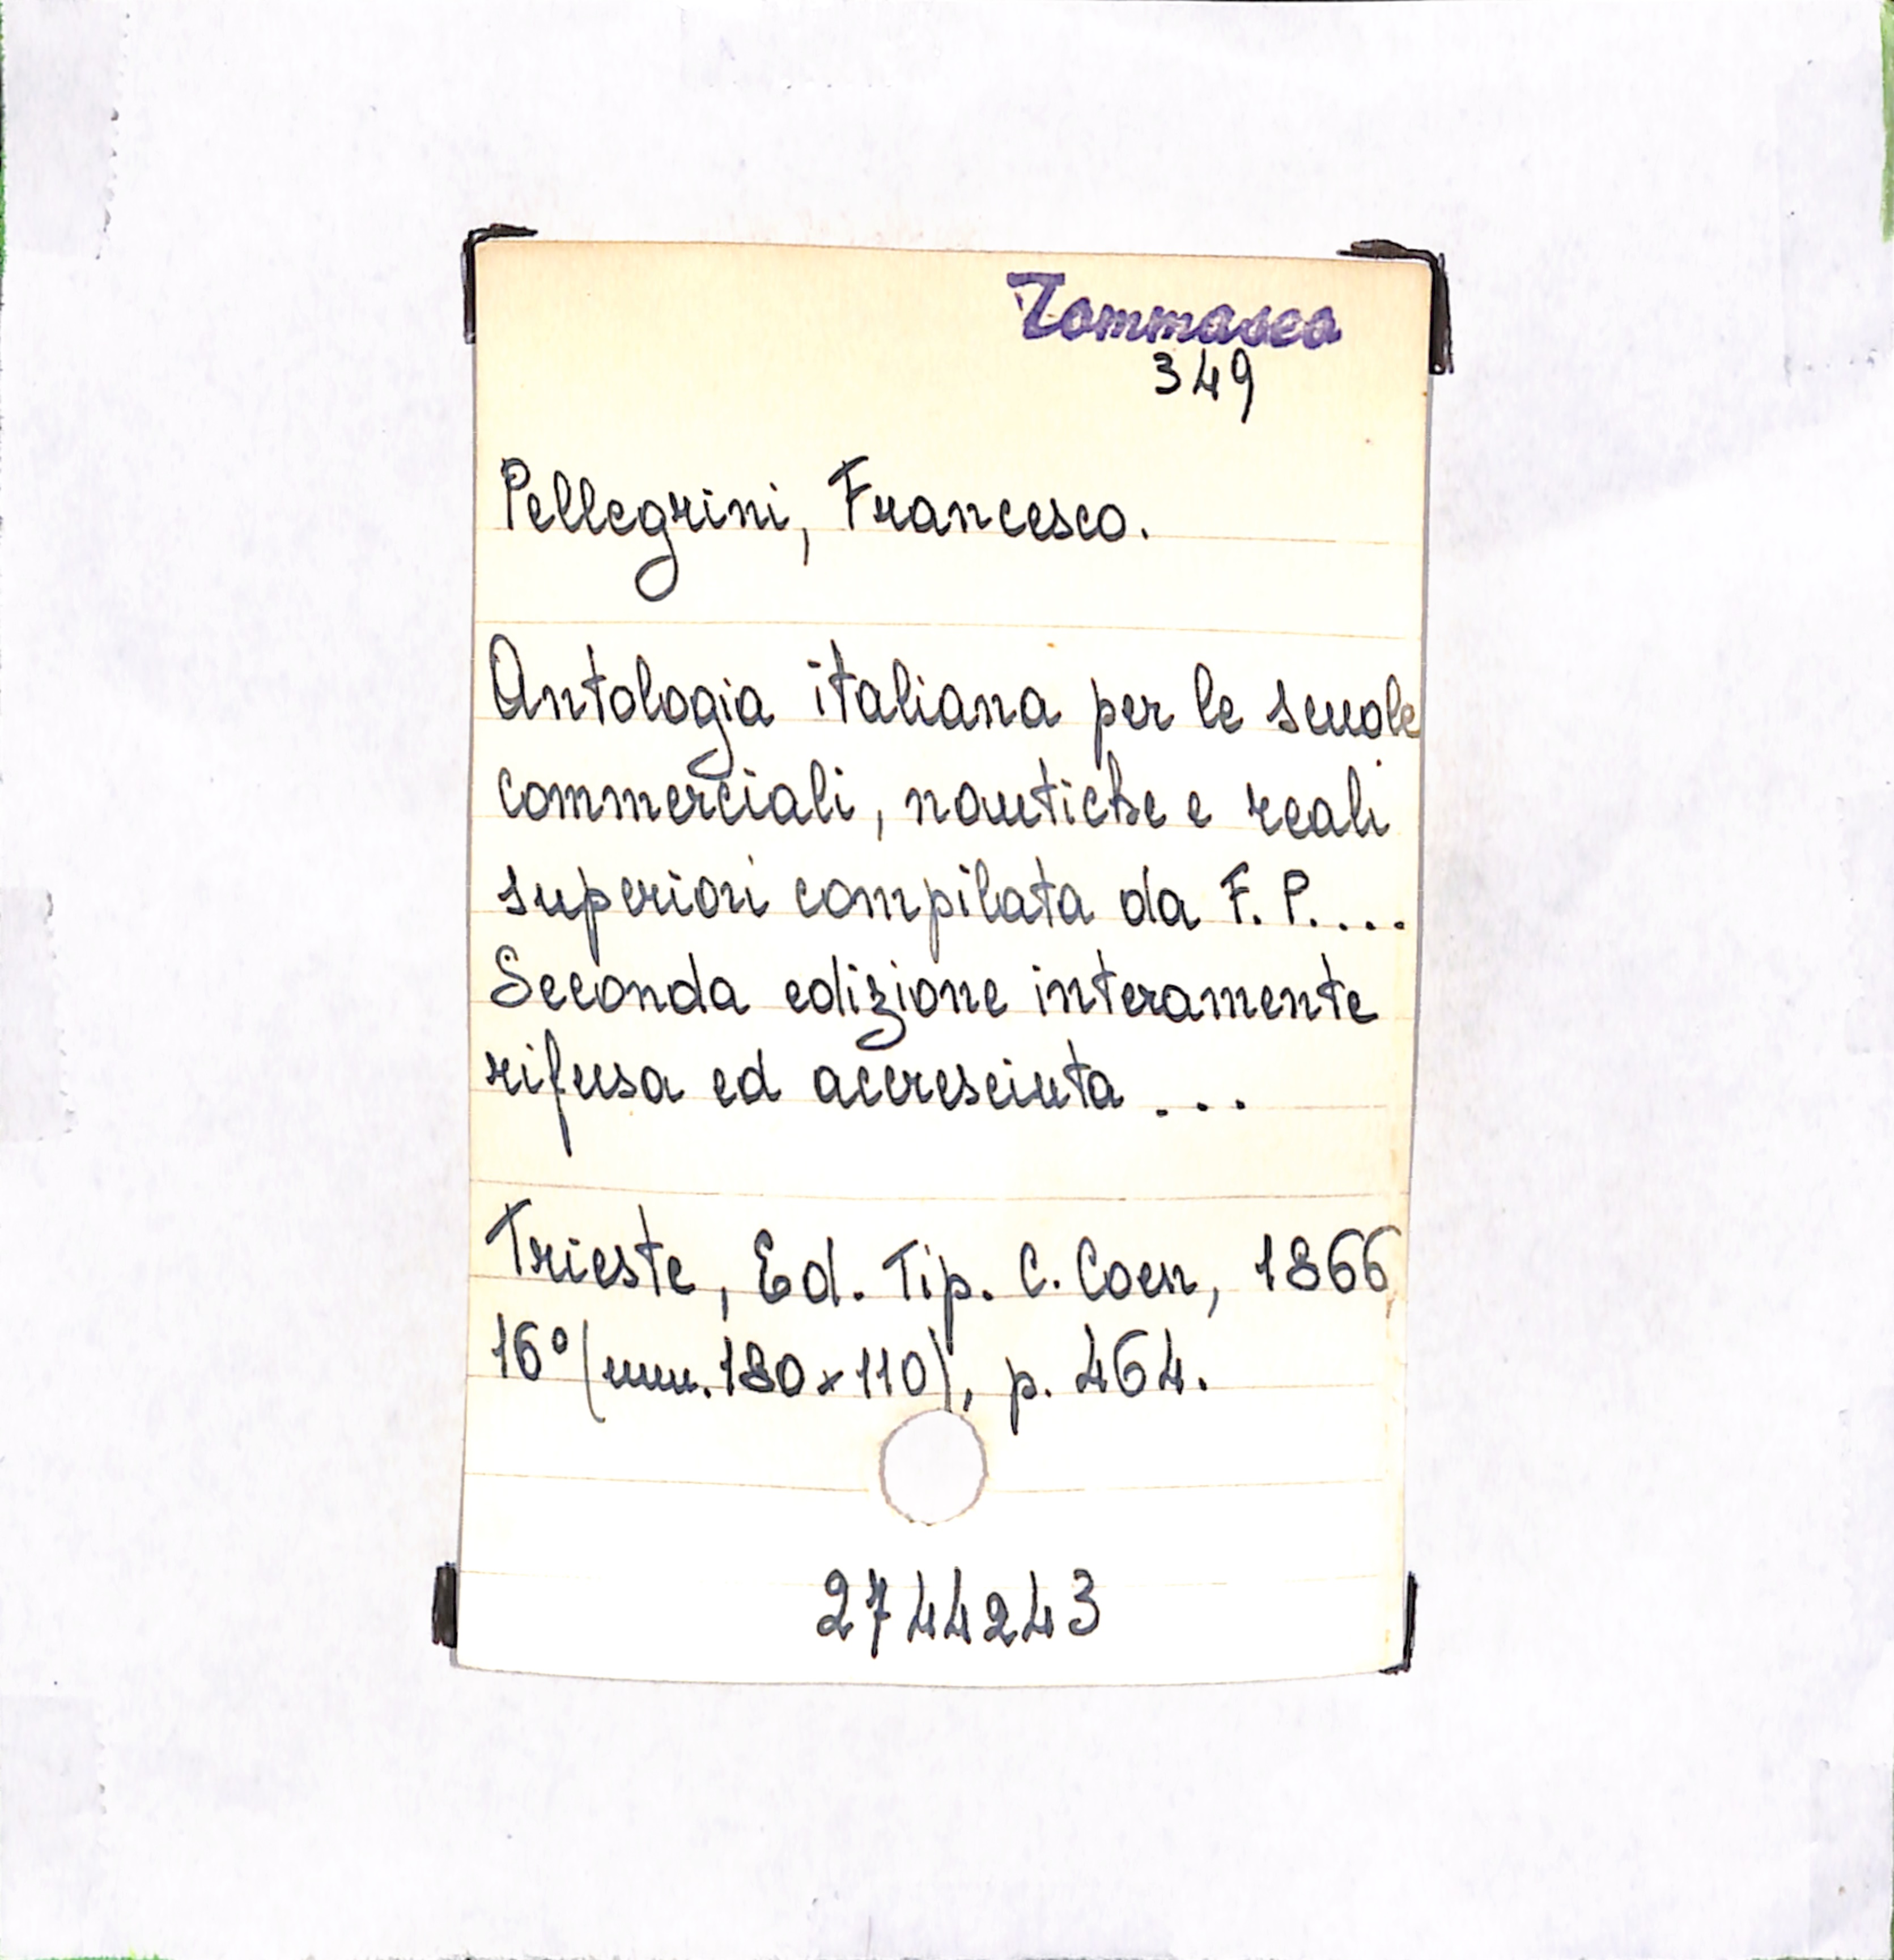 Tommaseo
349
Pellegrini, Francesco.
Antologia italiana per le scuole
commerciali, nautiche e reali
superiori compilata da F. P....
Seconda edizione interamente
rifusa ed accresciuta ...
Trieste, Ed. Tip. C. Coen, 1866,
16° (mm. 180 x 110), p. 464.
2744243